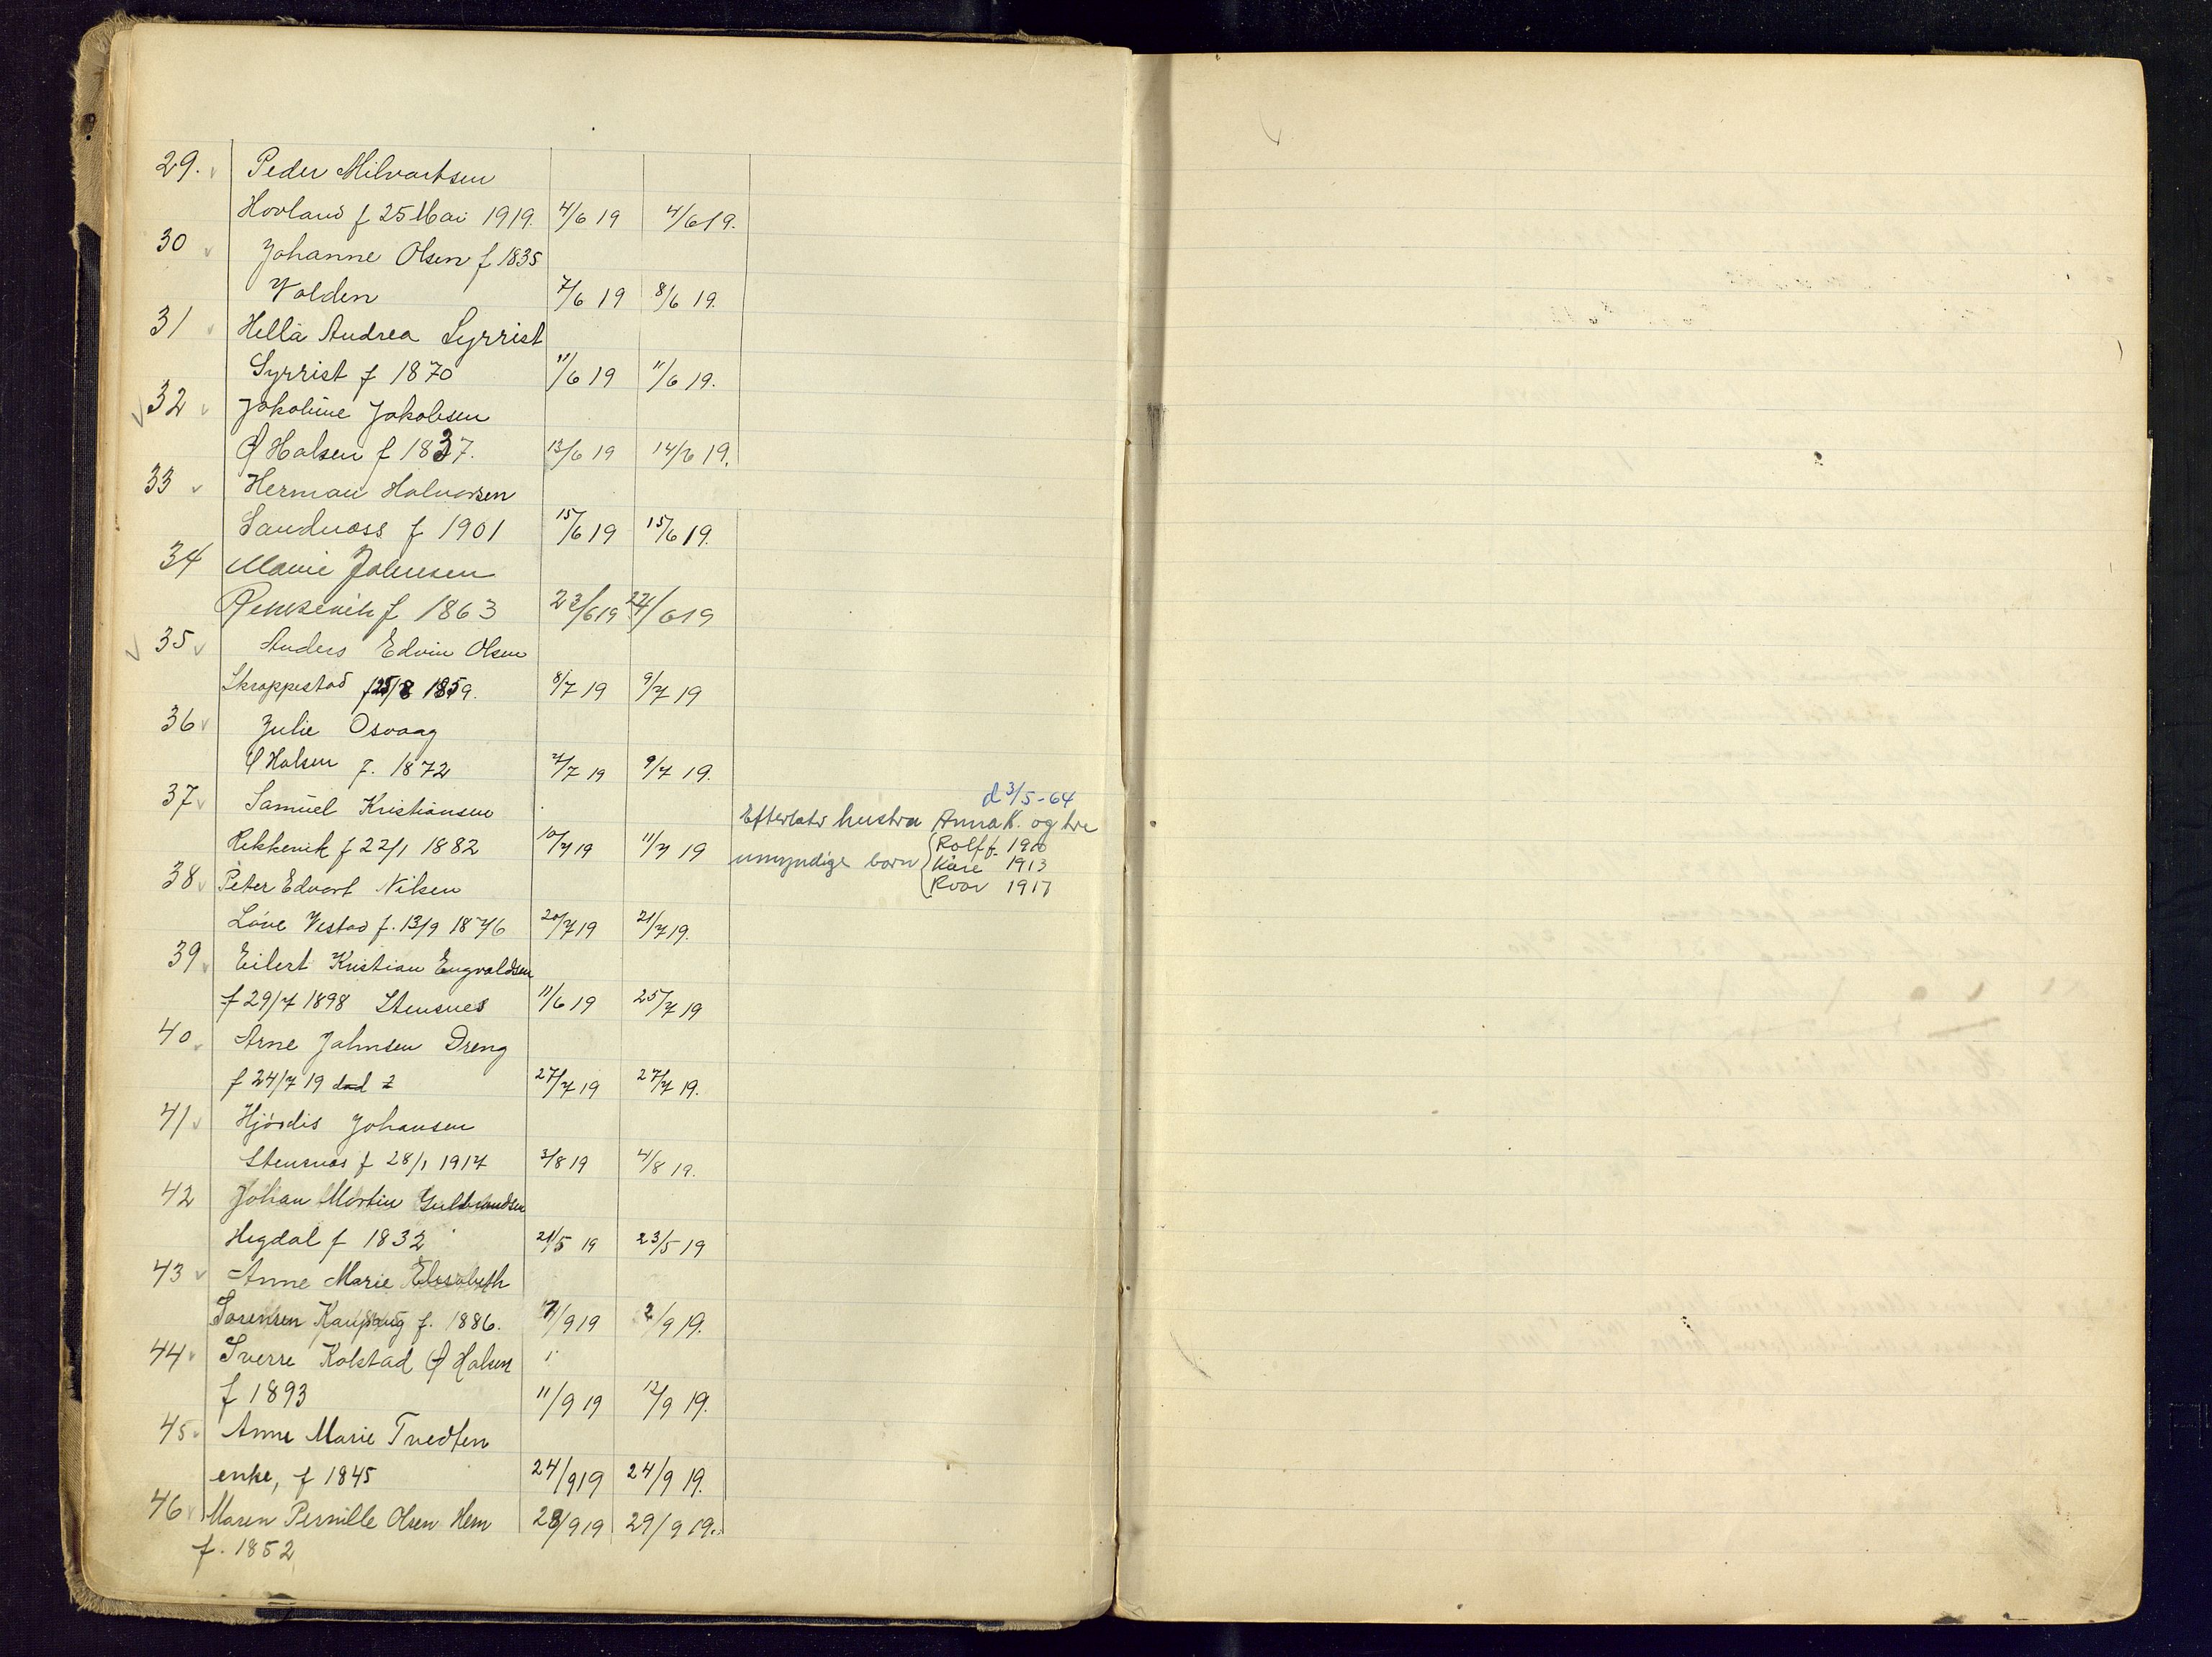 29. Peder Milvartsen
Hovland f 25 Mai 1919. 4/6 19 4/6 19.
30 Johanne Olsen f 1835
Valden 7/6 19 8/6 19.
31 Hella Andrea Syrrist
Syrrist f 1870 11/6 19 11/6 19.
32 Jakobine Jakobsen
Ø Halsen f 1837. 13/6 19 14/6 19.
33 Herman Halvorsen
Sandnæss f 1901 15/6 19 15/6 19.
34 Marie Johnsen
f 1863 23/6 19 24/6 19
35 Anders Edvin Olsen
Skrappestad f 25/8 1859. 8/7 19 9/7 19
36 Julie Osvaag
Ø Halsen f. 1872 7/7 19 9/7 19.
37 Samuel Kristiansen d 3/5-64
Efterlatr hustru Anna K. og tre
Rekkevik f 22/1 1882 10/7 19 11/7 19 umyndige born { Rolf f. 1910
Kåre 1913
Roar 1917
38 Peter Edvart Nilsen
Løve Vestad f. 13/9 1876 20/7 19 21/7 19.
39 Eilert Kristian Engvaldsen
f 29/7 1898 Stensnes 11/6 19 25/7 19
40 Arne Johnsen Dreng
f 24/7 19 27/7 19 27/7 19.
41 Hjørdis Johansen
Stensnæs f 28/1 1917 3/8 19 4/8 19.
42 Johan Martin Gulbrandsen
Hegdal f 1832 21/5 19 23/5 19
43 Anne Marie Elesabeth
Sørensen Kaupang f. 1886. 1/9 19 2/9 19.
44 Sverre Kolstad Ø Halsen
f 1893 11/9 19 12/9 19.
45 Anne Marie Tvedten
enke, f 1845 24/9 19 24/9 19.
46 Maren Pernille Olsen Hem 28/9 19 29/9 19.
f. 1852